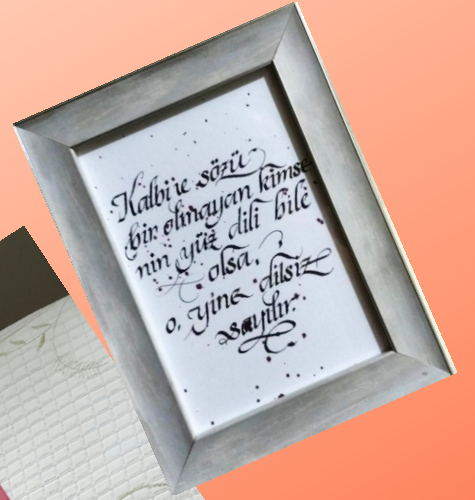 Kalbi'ie sözü
bir olmayan kimse
nin yüz dili bile
olsa,
o, yine dilsiz
sayılır.